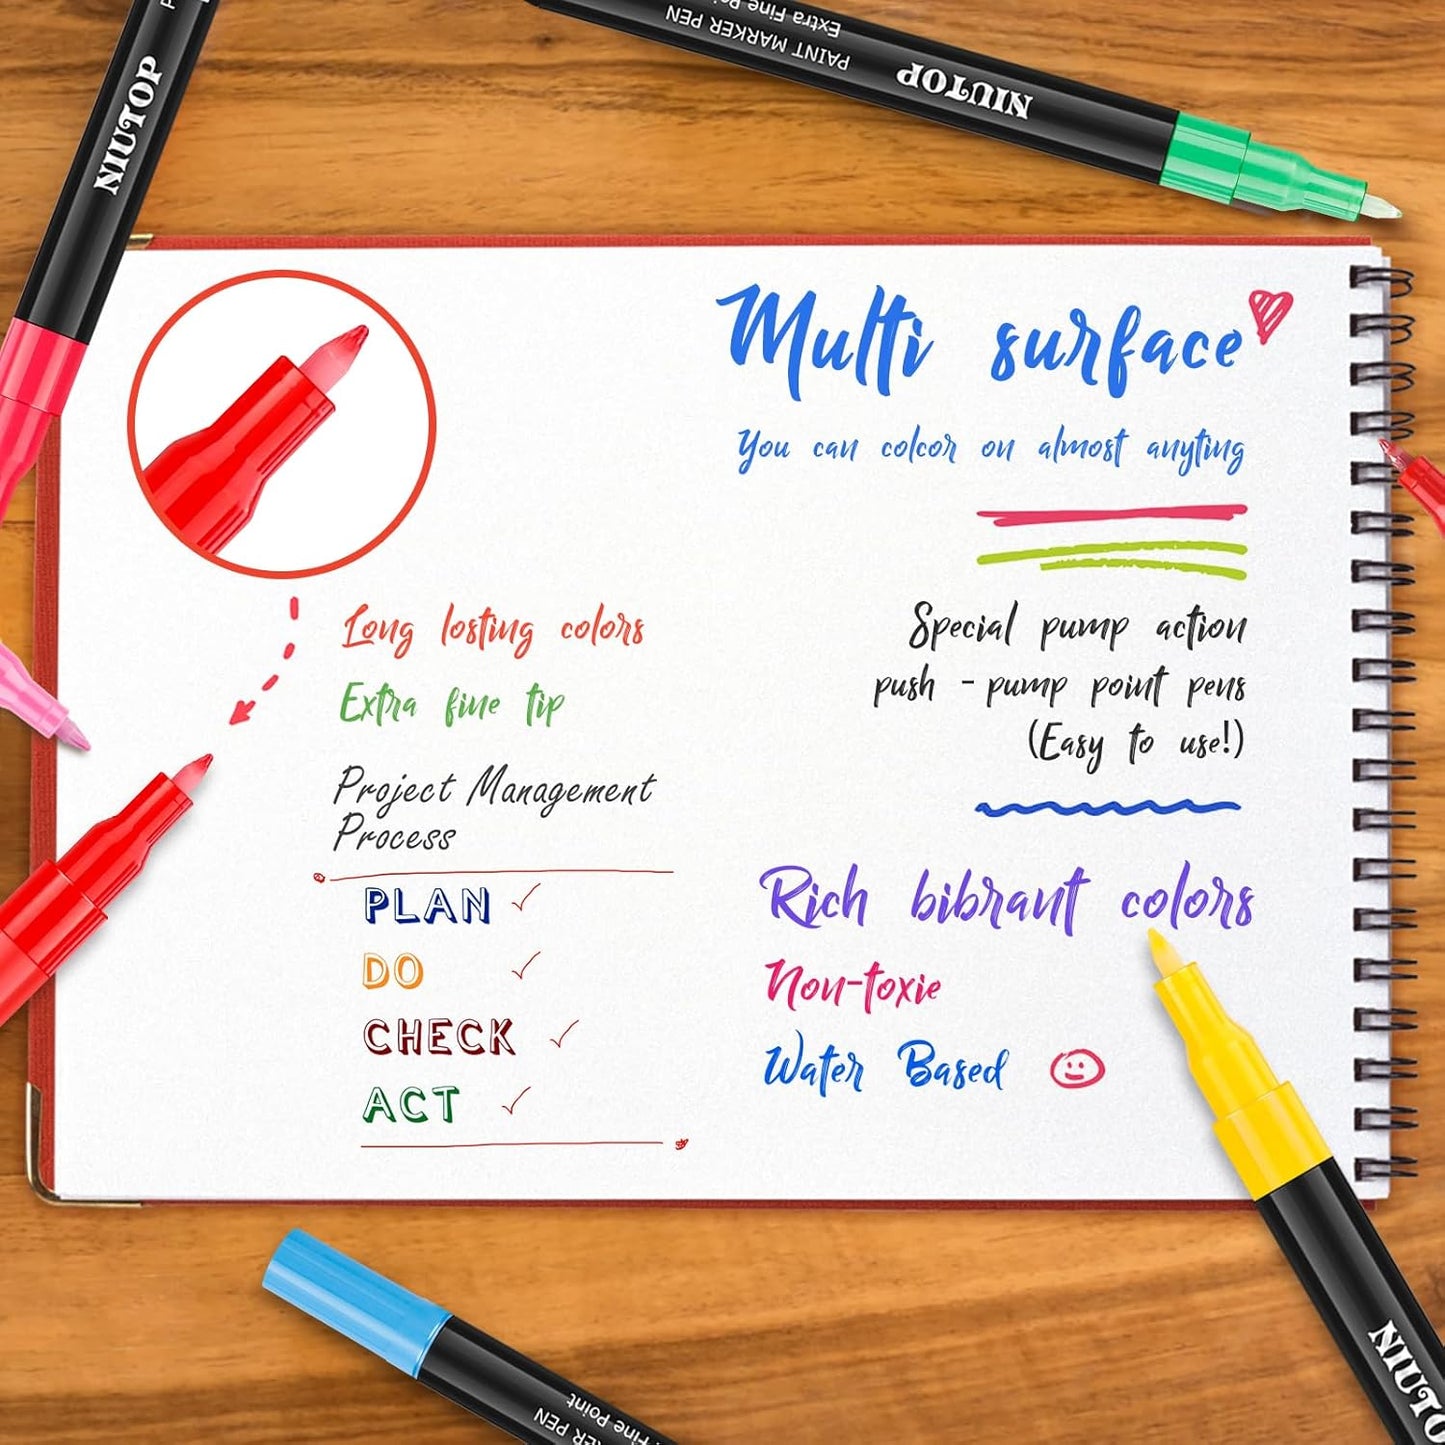 NIUTOP
NIUTOP
PAINT MARKER PEN
Extra Fine Po
Multi surface
You can colcor on almost anyting
Long losting colors
Extra fine tip
Project Management
Process
PLAN
DO
CHECK
ACT
Special pump action
push - pump point pens
(Easy to use!)
Rich bibrant colors
Non-toxie
Water Based
RKER PEN
Fine Point
NIUTOP